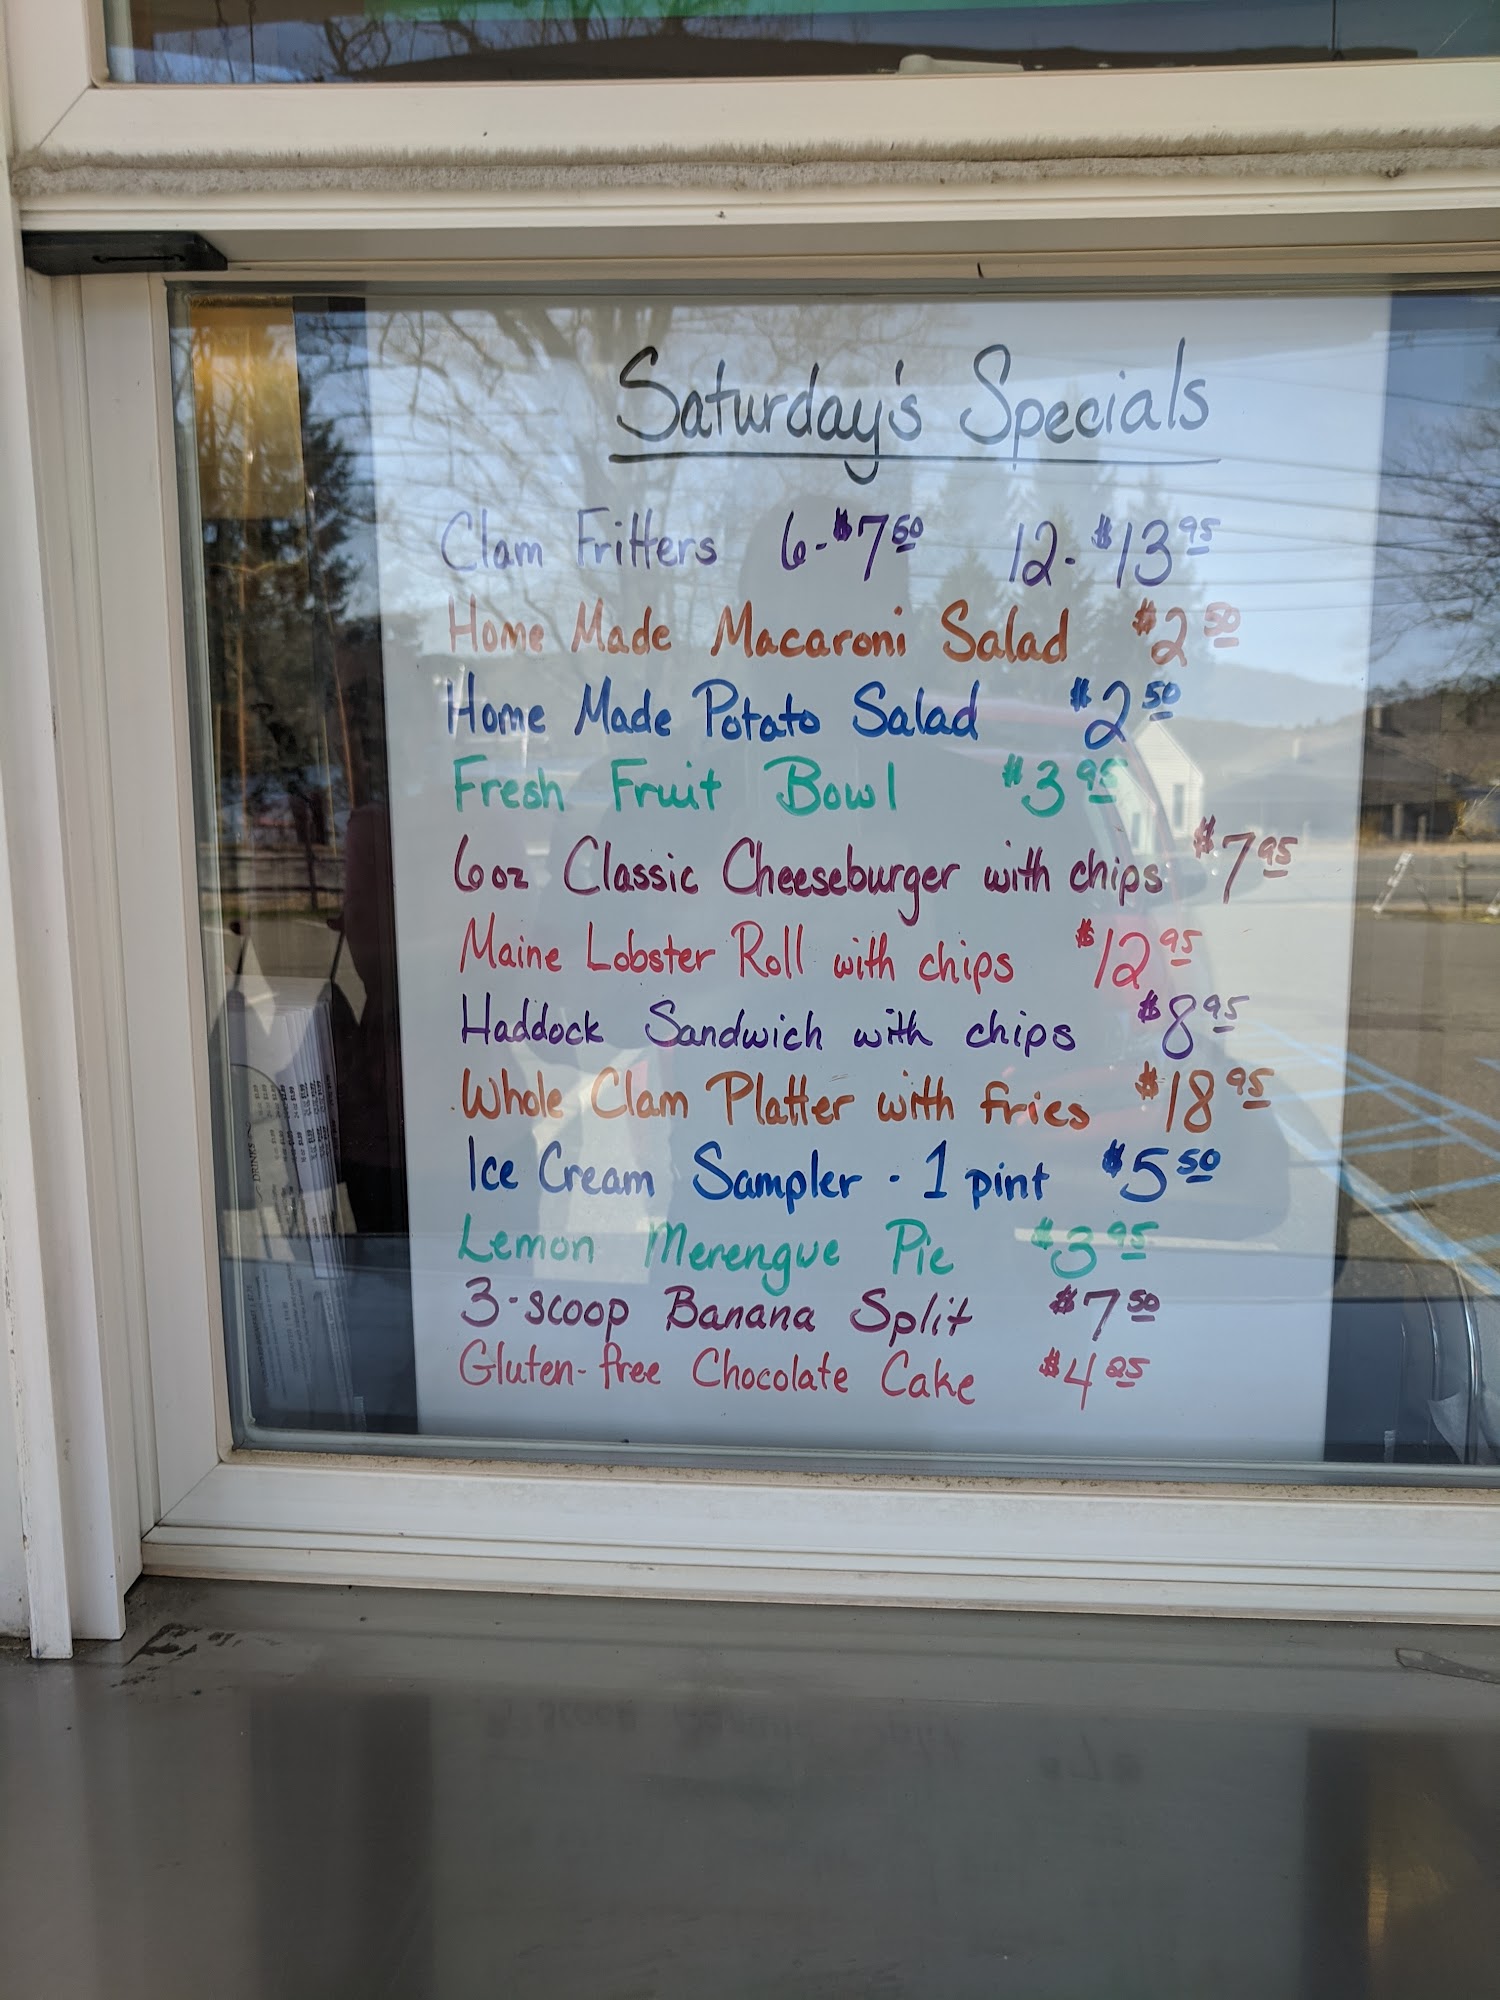 Saturday's Specials
Clam Fritters 6-$7.50 12-$13.95
Home Made Macaroni Salad $2.50
Home Made Potato Salad $2.50
Fresh Fruit Bowl $3.95
6oz Classic Cheeseburger with chips $7.95
Maine Lobster Roll with chips $12.95
Haddock Sandwich with chips $8.95
Whole Clam Platter with fries $18.95
Ice Cream Sampler - 1 pint $5.50
Lemon Merengue Pie $3.95
3-scoop Banana Split $7.50
Gluten-free Chocolate Cake $4.25
DRINKS